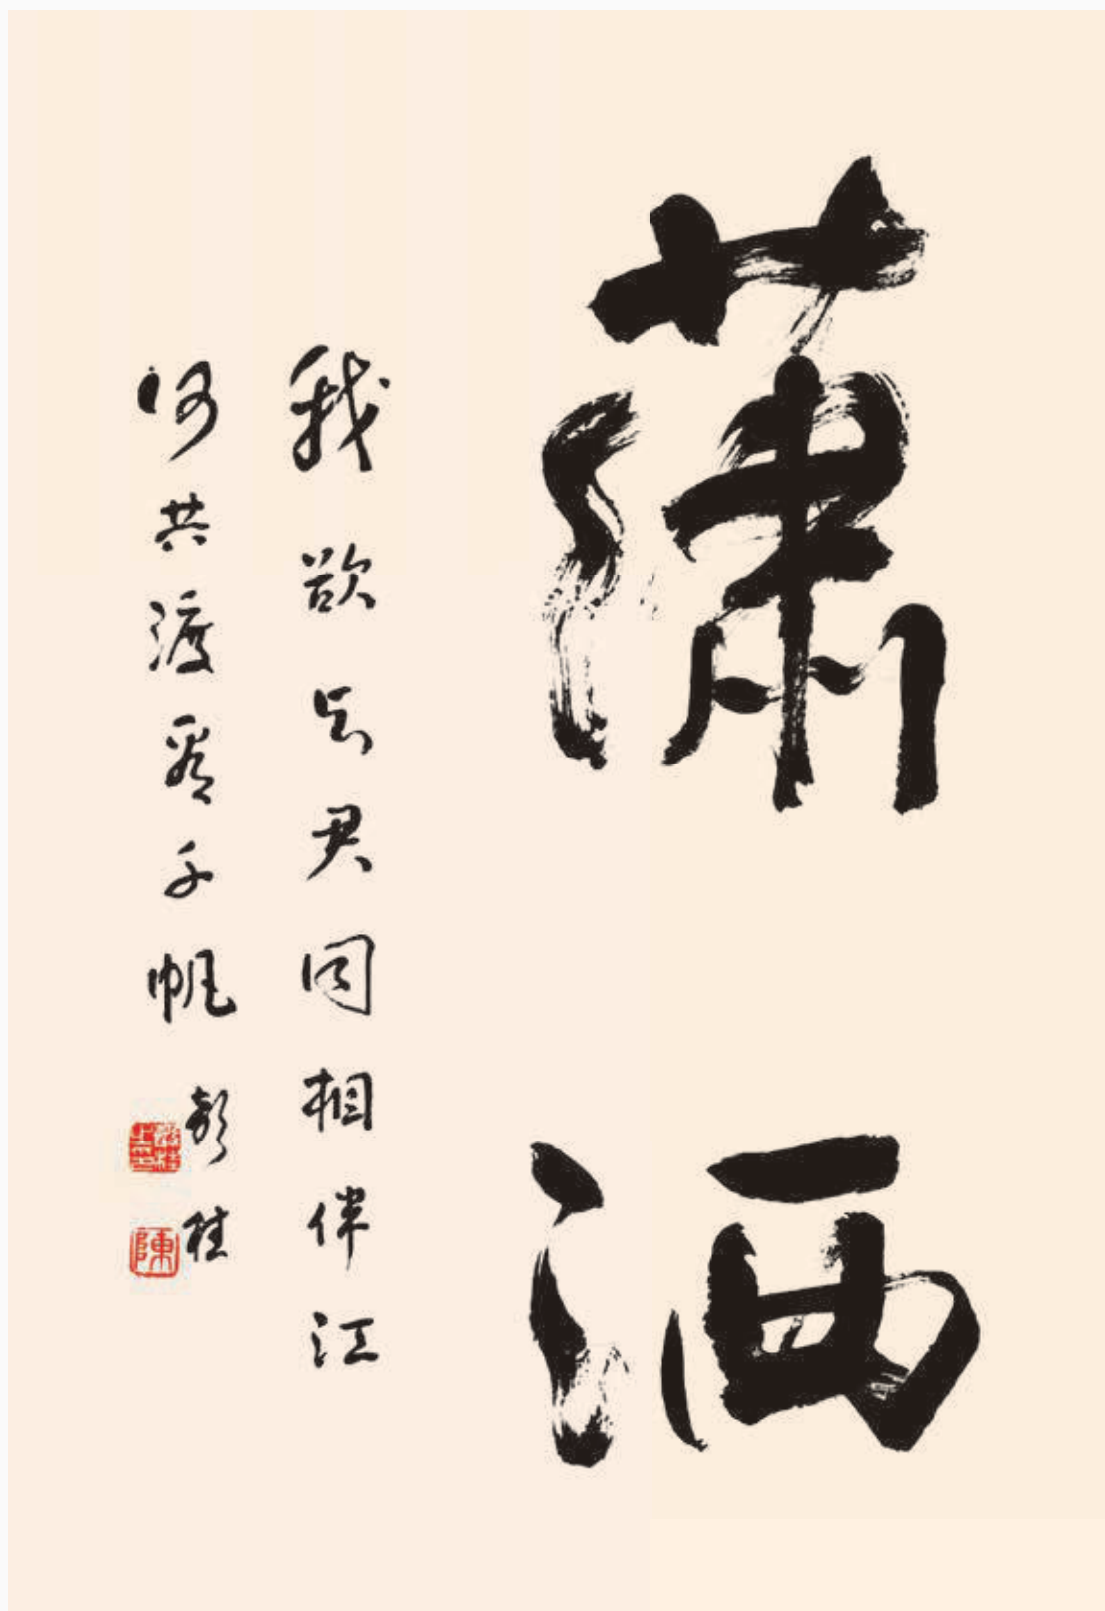 瀟洒
我欲与君同相伴江
河共渡看千帆
彭桂
陳